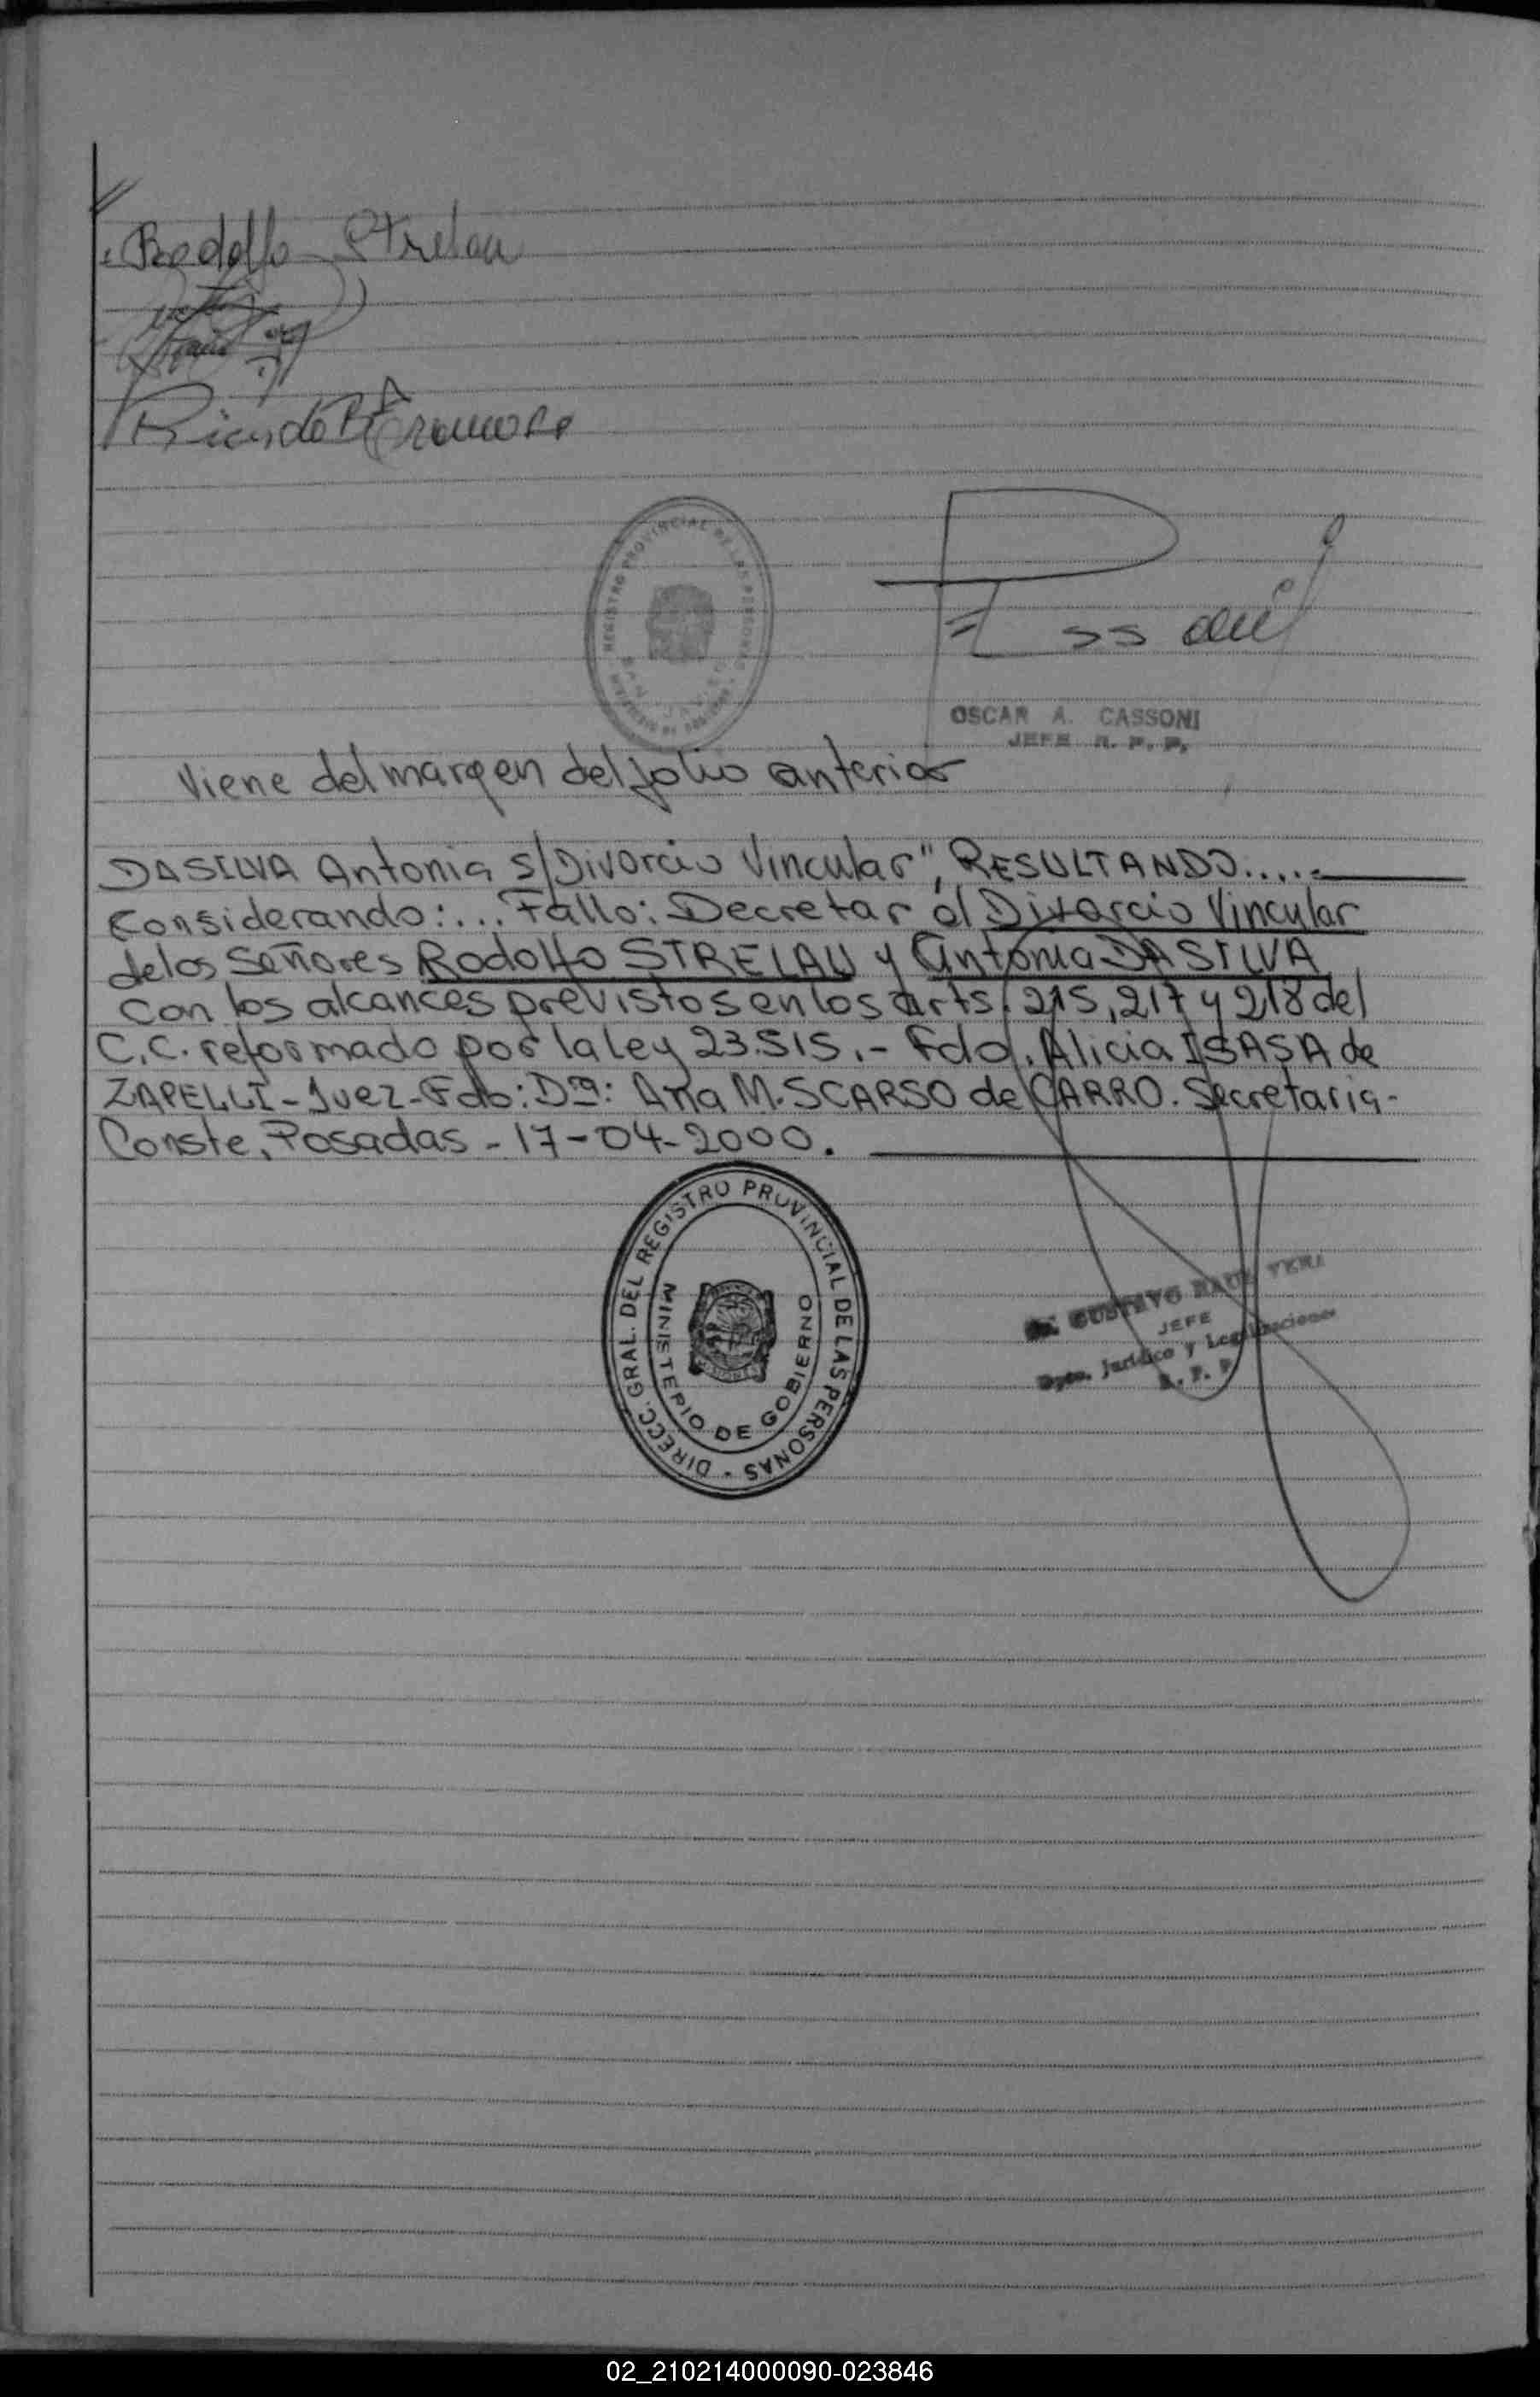 Rodolfo Strelau
Ricardo
REGISTRO PROVINCIAL DE LAS PERSONAS
OSCAR A. CASSONI
JEFE R. P. P.
Viene del margen del folio anterior
DASILVA Antonia s/Divorcio Vincular", RESULTANDO.....
Considerando:... Fallo: Decretar el Divorcio Vincular
de los Señores Rodolfo STRELAU y Antonia DASILVA
Con los alcances previstos en los arts. 215, 217 y 218 del
C.C. reformado por la ley 23.515.- Fdo. Alicia ISASA de
ZAPELLI - Juez - Fdo: Dra: Ana M. SCARSO de CARRO. Secretaria-
Conste, Posadas - 17-04-2000.
DIRECC. GRAL. DEL REGISTRO PROVINCIAL DE LAS PERSONAS
MINISTERIO DE GOBIERNO
GUSTAVO RAUL
JEFE
Dpto. Jurídico y Legalizaciones
R. P. P.
02_210214000090-023846